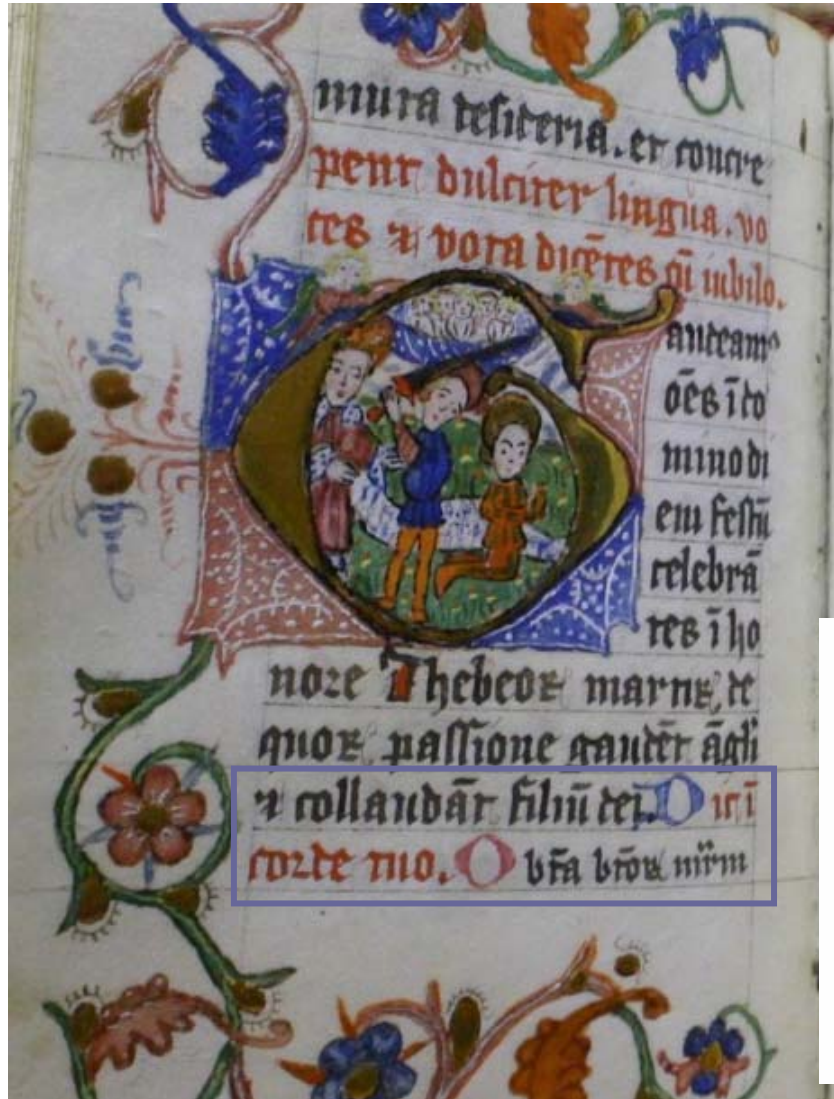 mura desideria. et concre
pent dulciter lingua. vo
ces ⁊ vota dicētes cū iubilo.
Gaudeamꝰ
oēs ī do
mino di
em festū
celebrā
tes ī ho
nore Thebeoꝝ martirꝝ, de
quoꝝ passione gaudēt āgli
⁊ collaudāt filiū dei. Dic ī
corde tuo. O bēa